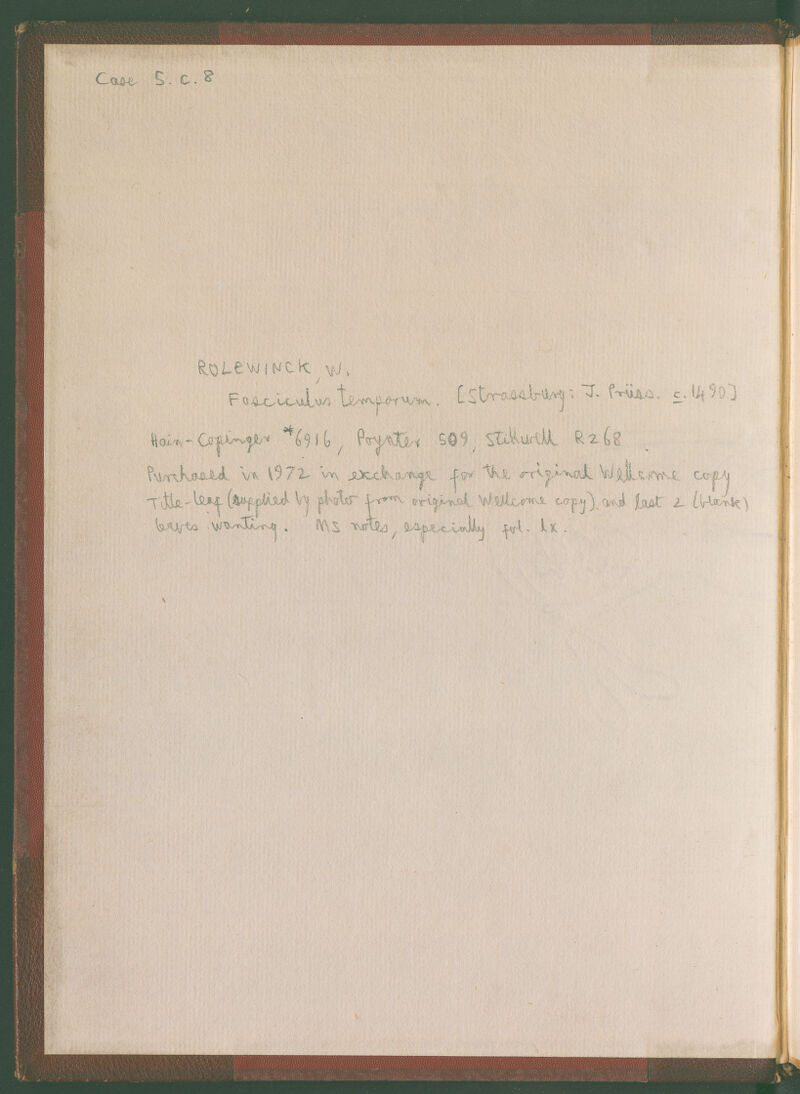 Case 5. c. 8
ROLEWINCK, W.
Fasciculus temporum. [Strassburg: J. Prüss. c. 1490]
Hain-Copinger *6916, Poynter 509, Stillwell R268
Purchased in 1972 in exchange for the original Wellcome copy
Title-leaf (supplied by photo from original Wellcome copy) and last 2 (blank)
leaves wanting. MS notes, especially fol. lx.